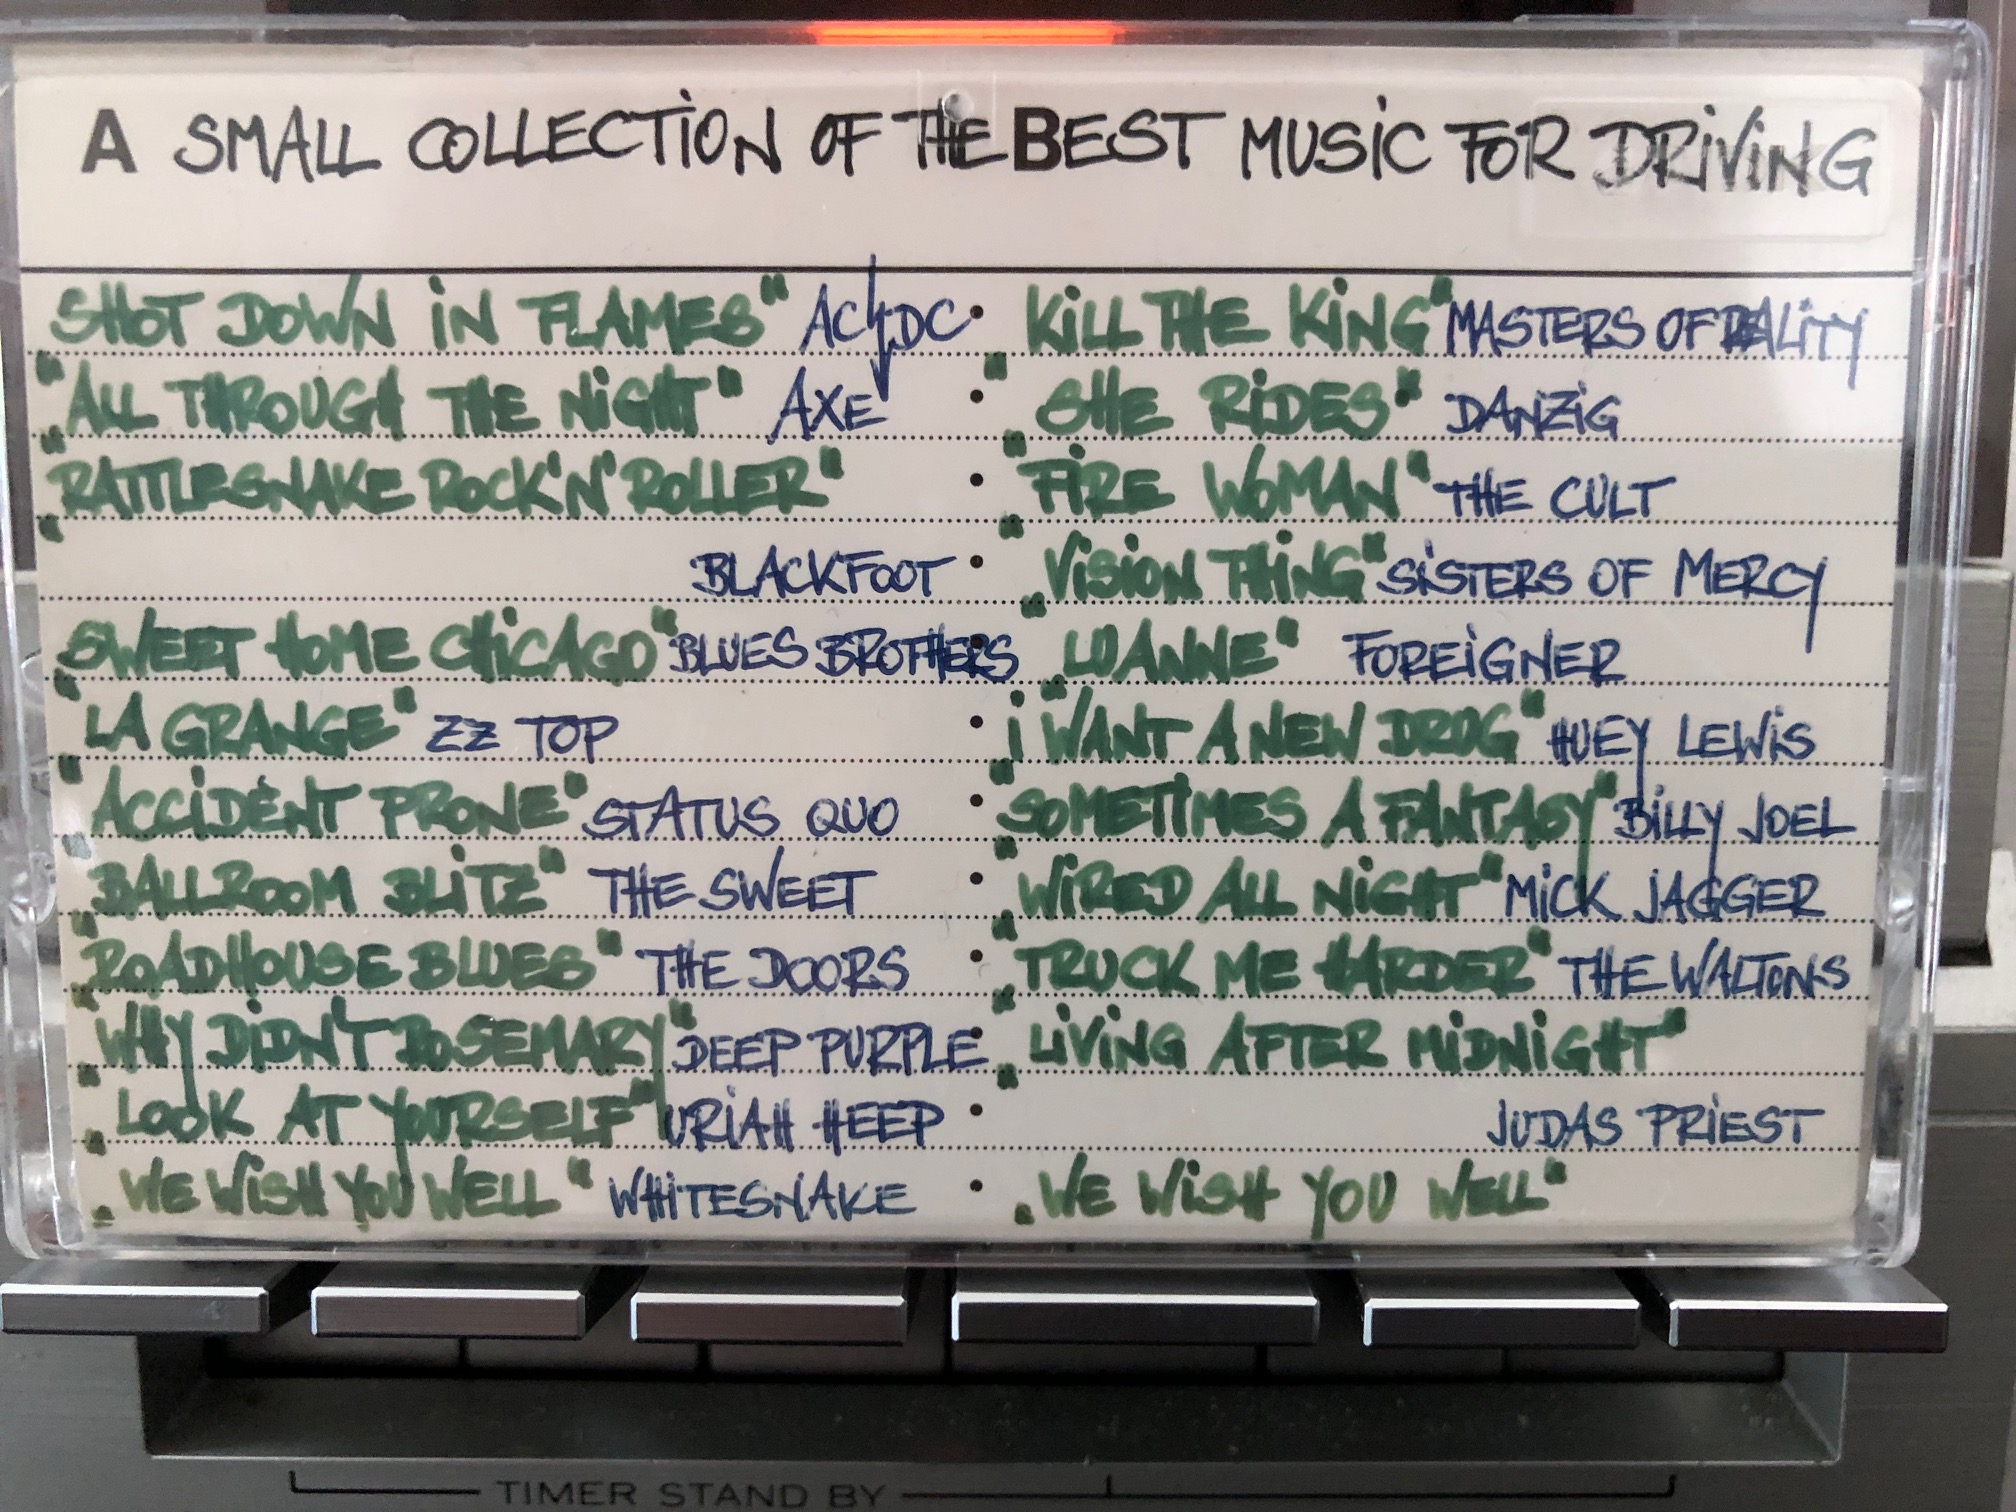 A SMALL COLLECTION OF THE BEST MUSIC FOR DRIVING
SHOT DOWN IN FLAMES" AC/DC
"ALL THROUGH THE NIGHT" AXE
"RATTLESNAKE ROCK'N'ROLLER"
BLACKFOOT
"SWEET HOME CHICAGO" BLUES BROTHERS
"LA GRANGE" ZZ TOP
"ACCIDENT PRONE" STATUS QUO
"BALLROOM BLITZ" THE SWEET
"ROADHOUSE BLUES" THE DOORS
"WHY DIDN'T ROSEMARY" DEEP PURPLE
"LOOK AT YOURSELF" URIAH HEEP
"WE WISH YOU WELL" WHITESNAKE
KILL THE KING" MASTERS OF REALITY
"SHE RIDES" DANZIG
"FIRE WOMAN" THE CULT
"VISION THING" SISTERS OF MERCY
"LUANNE" FOREIGNER
"I WANT A NEW DRUG" HUEY LEWIS
"SOMETIMES A FANTASY" BILLY JOEL
"WIRED ALL NIGHT" MICK JAGGER
"TRUCK ME HARDER" THE WALTONS
"LIVING AFTER MIDNIGHT"
JUDAS PRIEST
"WE WISH YOU WELL"
TIMER STAND BY